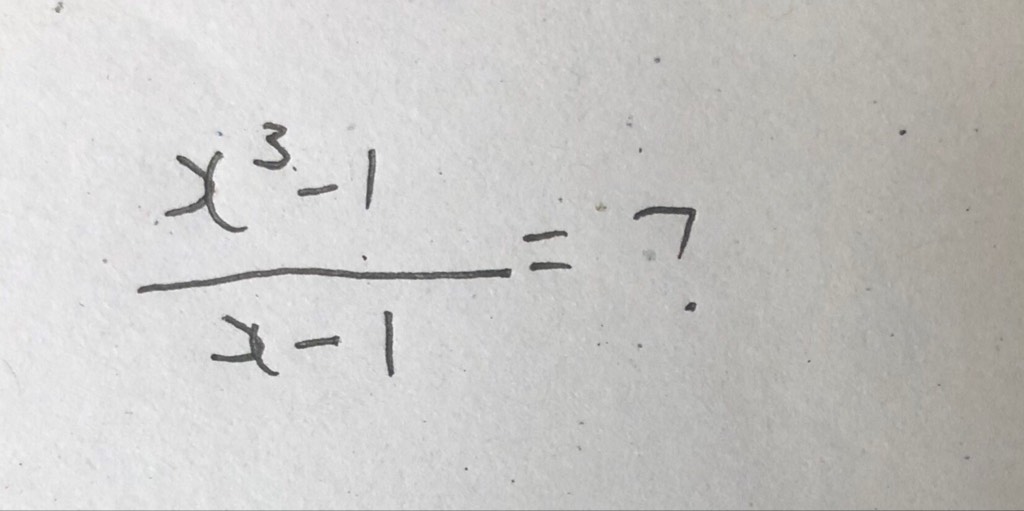 x³-1
x-1 = ?